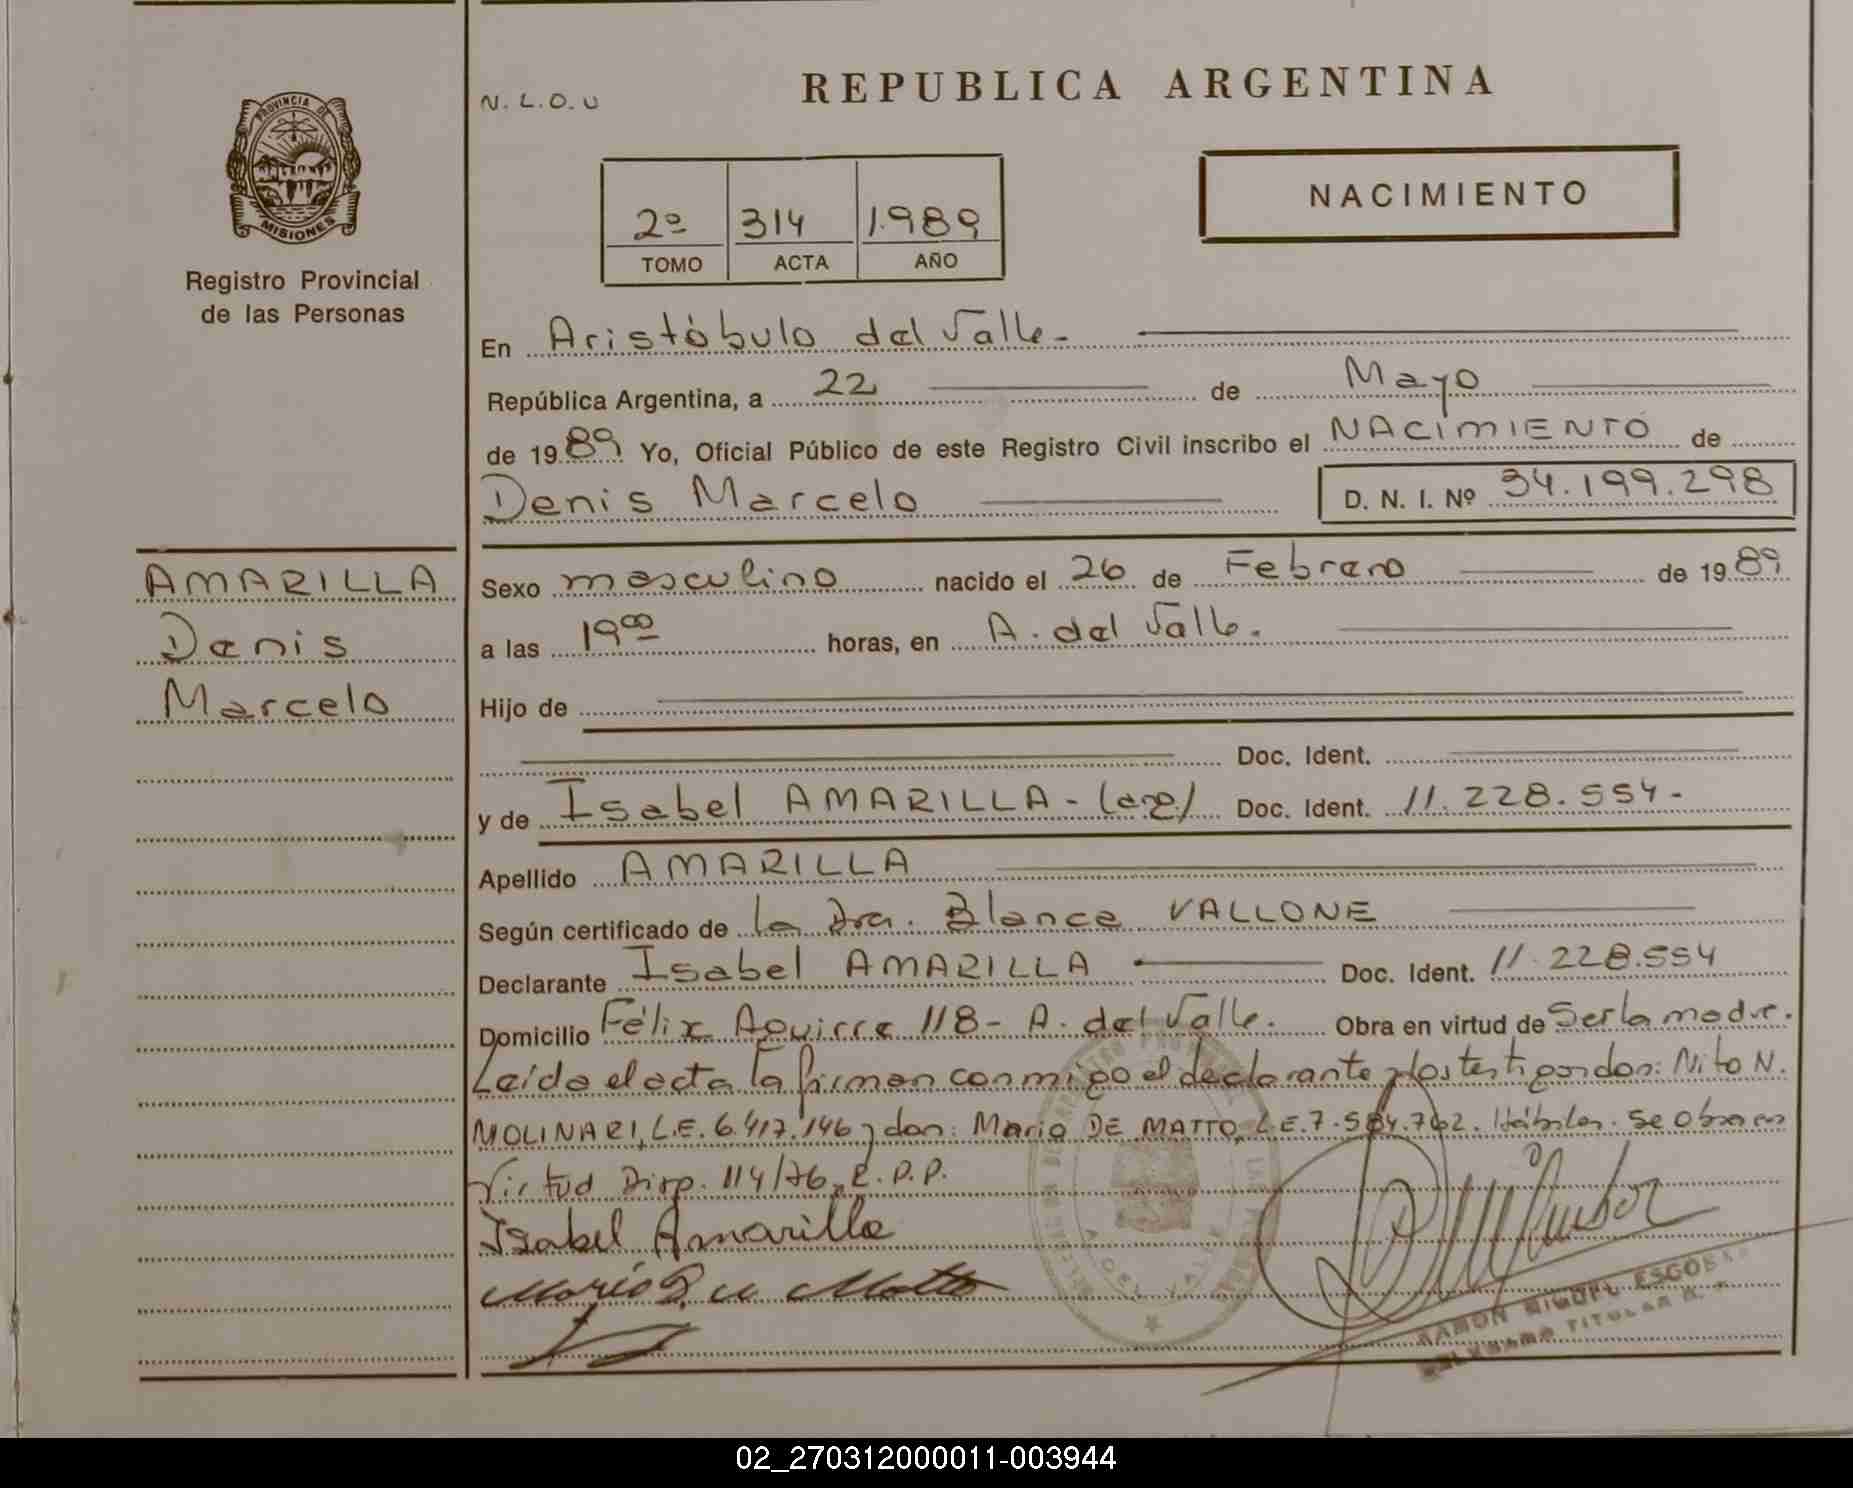 PROVINCIA DE
MISIONES
Registro Provincial
de las Personas
N. L. O. U
REPUBLICA ARGENTINA
2º 314 1.989
TOMO ACTA AÑO
NACIMIENTO
En Aristóbulo del Valle.-
República Argentina, a 22 de Mayo
de 1989 Yo, Oficial Público de este Registro Civil inscribo el NACIMIENTO de
Denis Marcelo D. N. I. Nº 34.199.298
AMARILLA
Denis
Marcelo
Sexo masculino nacido el 26 de Febrero de 1989
a las 19 00 horas, en A. del Valle.
Hijo de
Doc. Ident.
y de Isabel AMARILLA - (arg.) Doc. Ident. 11.228.554-
Apellido AMARILLA
Según certificado de la Dra. Blanca VALLONE
Declarante Isabel AMARILLA Doc. Ident. 11.228.554
Domicilio Félix Aguirre 118 - A. del Valle. Obra en virtud de Ser la madre.
Leída el acta la firman conmigo el declarante y los testigos don: Nito N.
MOLINARI, L.E. 6.417.146 y don: Mario DE MATTO, L.E. 7.584.762. Hábiles. Se obra en
Virtud Disp. 114/76 R.P.P.
Isabel Amarilla
Mario D. Matto
RAMON MIGUEL ESCOBAR
TITULAR
02_270312000011-003944